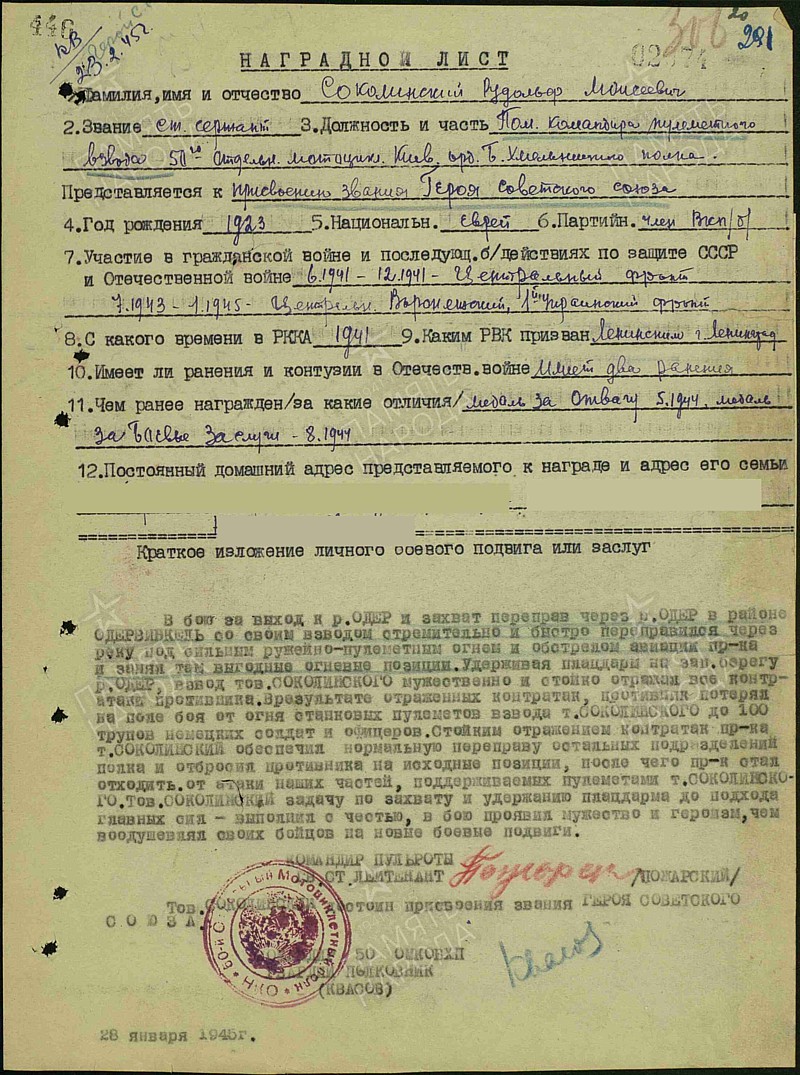 446
КВ
23.2.45г.
306
20
291
02674
НАГРАДНОЙ ЛИСТ
1.Фамилия,имя и отчество Соколинский Рудольф Моисеевич
2.Звание ст. сержант 3.Должность и часть Пом. командира пулеметного
взвода 50го отдельн. мотоцикл. Киев. орд. Б. Хмельницкого полка.
Представляется к присвоению звания Героя Советского союза
4.Год рождения 1923 5.Национальн. еврей 6.Партийн. член ВКП/б/
7.Участие в гражданской войне и последующ.б/действиях по защите СССР
и Отечественной войне 6.1941 - 12.1941 - Центральный фронт
7.1943 - 1.1945 - Центральн. Воронежский, 1й Украинский фронт
8.С какого времени в РККА 1941 9.Каким РВК призван Ленинским г. Ленинград
10.Имеет ли ранения и контузии в Отечеств.войне Имеет два ранения
11.Чем ранее награжден/за какие отличия/ медаль за Отвагу 5.1944. медаль
За Боевые Заслуги - 8.1944
12.Постоянный домашний адрес представляемого к награде и адрес его семьи
Краткое изложение личного боевого подвига или заслуг
В бою за выход к р.ОДЕР и захват переправ через р.ОДЕР в районе
ОДЕРВИНКЕЛЬ со своим взводом стремительно и быстро переправился через
реку под сильным ружейно-пулеметным огнем и обстрелом авиации пр-ка
и занял там выгодные огневые позиции.Удерживая плацдарм на зап.берегу
р.ОДЕР, взвод тов.СОКОЛИНСКОГО мужественно и стойко отражал все контр-
атаки противника.Врезультате отраженных контратак, противник потерял
на поле боя от огня станковых пулеметов взвода т.СОКОЛИНСКОГО до 100
трупов немецких солдат и офицеров.Стойким отражением контратак пр-ка
т.СОКОЛИНСКИЙ обеспечил нормальную переправу остальных подразделений
полка и отбросил противника на исходные позиции, после чего пр-к стал
отходить.от атаки наших частей, поддерживаемых пулеметами т.СОКОЛИНСКО-
ГО.Тов.СОКОЛИНСКИЙ задачу по захвату и удержанию плацдарма до подхода
главных сил - выполнил с честью, в бою проявил мужество и героизм,чем
воодушевлял своих бойцов на новые боевые подвиги.
КОМАНДИР ПУЛЬРОТЫ
ГВ.СТ.ЛЕЙТЕНАНТ Пожарский /ПОЖАРСКИЙ/
Тов.СОКОЛИНСКИЙ достоин присвоения звания ГЕРОЯ СОВЕТСКОГО
СОЮЗА.
КОМАНДИР 50 ОМКОБХП
ГВАРДИИ ПОЛКОВНИК
(КВАСОВ)
Квасов
50-й Отдельный Мотоциклетный полк
28 января 1945г.